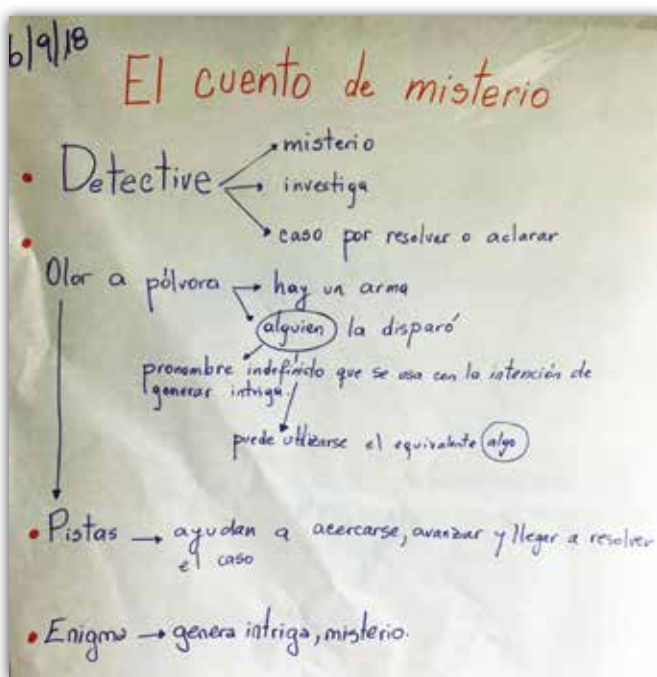 6/9/18
El cuento de misterio
• Detective → misterio
→ investiga
→ caso por resolver o aclarar
• Olor a pólvora → hay un arma
→ alguien la disparó
pronombre indefinido que se usa con la intención de
generar intriga.
puede utilizarse el equivalente algo
• Pistas → ayudan a acercarse, avanzar y llegar a resolver
el caso
• Enigma → genera intriga, misterio.